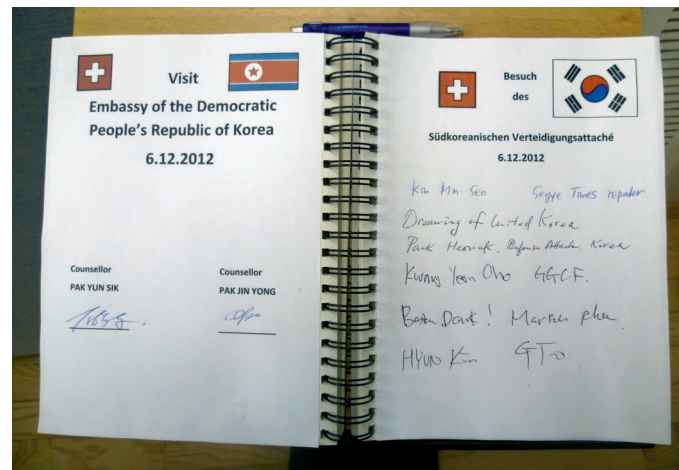 Visit
Embassy of the Democratic
People's Republic of Korea
6.12.2012
Counsellor
PAK YUN SIK
Counsellor
PAK JIN YONG
Besuch
des
Südkoreanischen Verteidigungsattaché
6.12.2012
Kim Min Seo Segye Times reporter
Dreaming of United Korea
Park Defense Attache, Korea
Kwang Yeon Cho GGCF.
Besten Dank! Markus
HYUN Kim GTO